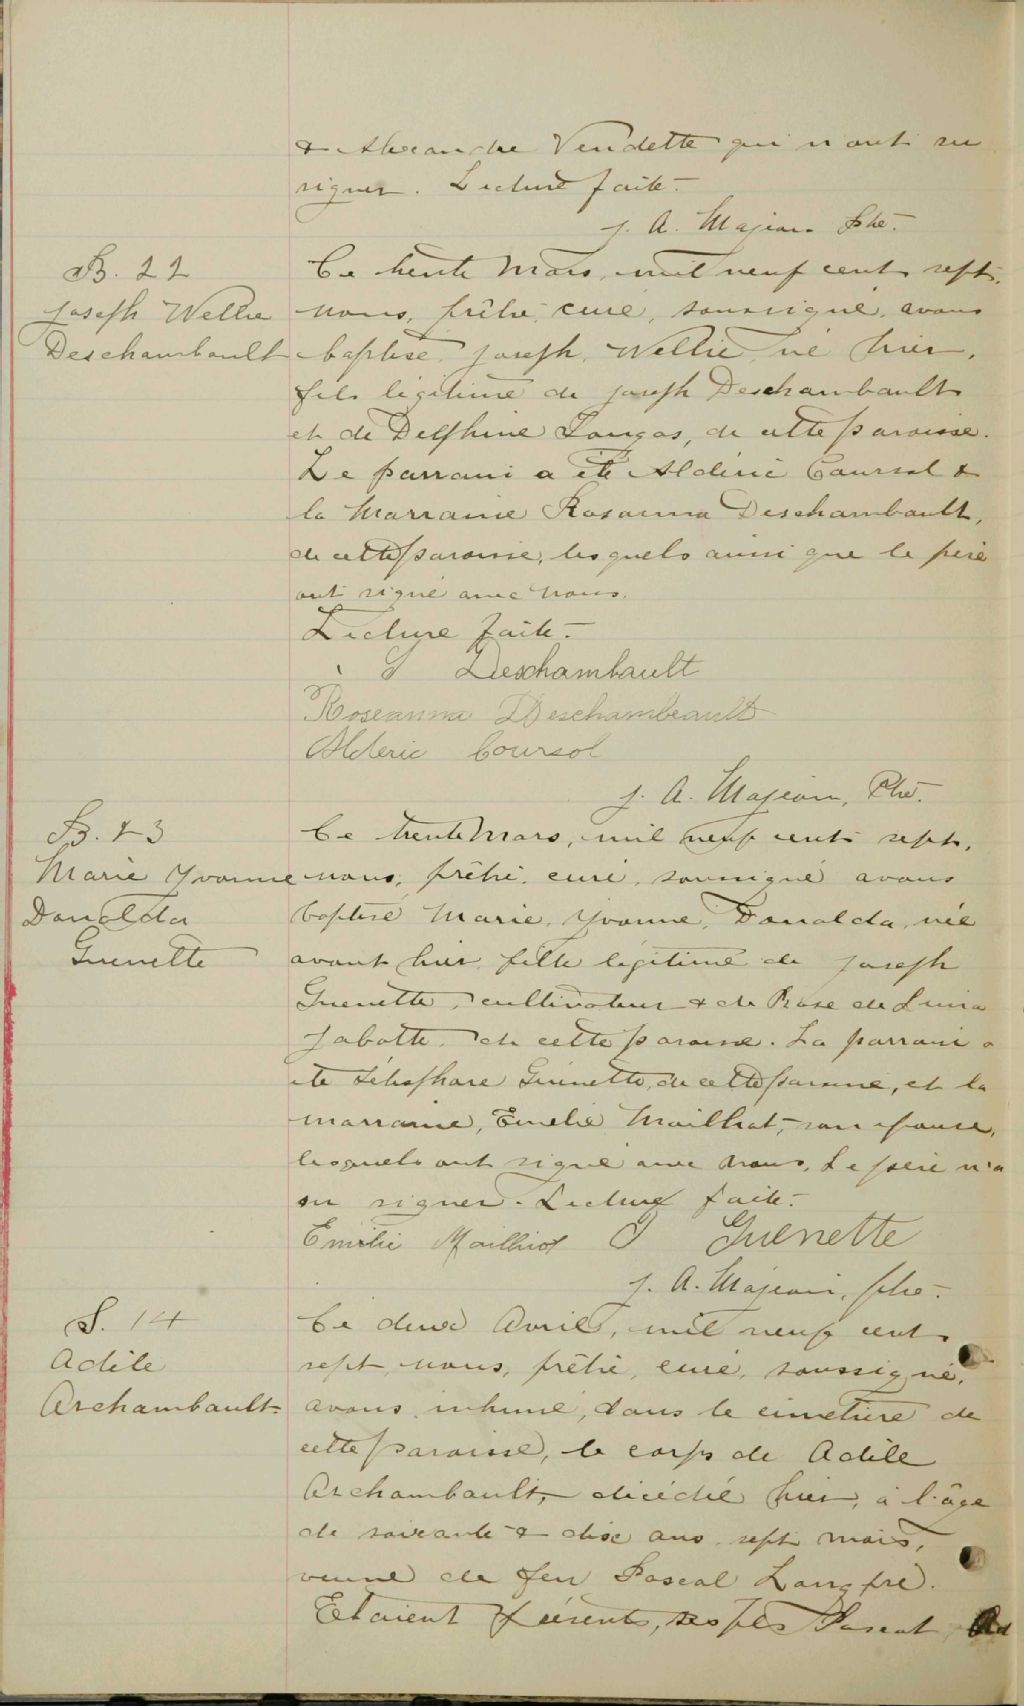 & Alexandre Vendette qui n'ont su
signer. Lecture faite.
J. A. Majeau Ptre.
B. 22
Joseph Wellie
Deschambault
Ce trente Mars, mil neuf cent sept,
nous, prêtre, curé, soussigné, avons
baptisé Joseph, Wellie, né hier,
fils légitime de Joseph Deschambault
et de Delphine Longas, de cette paroisse.
Le parrain a été Aldéric Coursol &
la Marraine Rosanna Deschambault,
de cette paroisse, lesquels ainsi que le père
ont signé avec nous.
Lecture faite.
J Deschambault
Roseanna Deschambeault
Alderic Coursol
J. A. Majeau, Ptre.
B. 23
Marie Yvonne
Donalda
Guenette
Ce trente Mars, mil neuf cent sept,
nous, prêtre, curé, soussigné avons
baptisé Marie, Yvonne, Donalda, née
avant hier, fille légitime de Joseph
Guenette, cultivateur & de Rose de Lima
Jabotte, de cette paroisse. Le parrain a
été Télesphore Guenette, de cette paroisse, et la
marraine, Emélie Mailhot, son épouse,
lesquels ont signé avec nous. Le père n'a
su signer. Lecture faite.
Emilie Mailhiot J Guenette
J. A. Majeau, ptre.
S. 14
Adèle
Archambault
Ce deux Avril, mil neuf cent
sept, nous, prêtre, curé, soussigné,
avons inhumé, dans le cimetière de
cette paroisse, le corps de Adèle
Archambault, décédée hier, à l'âge
de soixante & dix ans sept mois,
veuve de feu Pascal Langpré.
Etaient présents, ses fils Pascal,